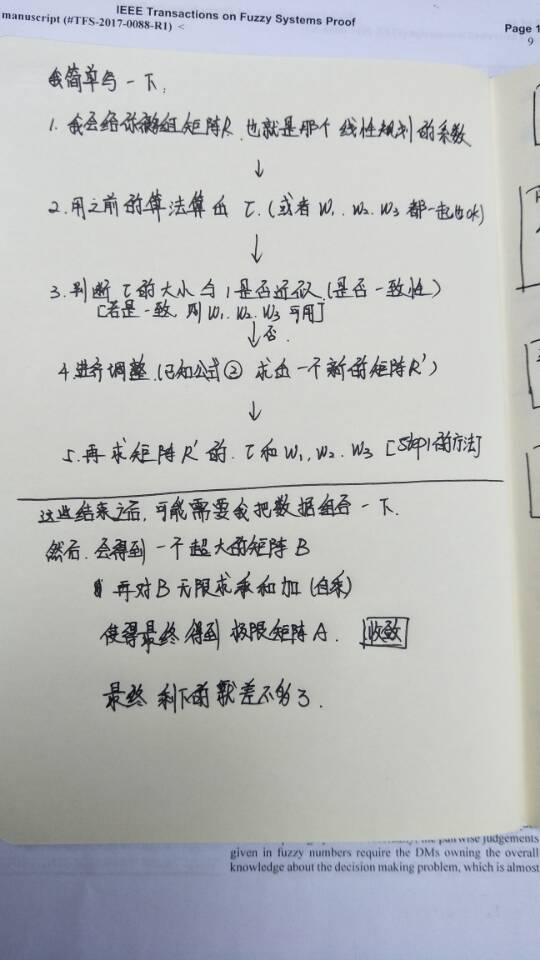 IEEE Transactions on Fuzzy Systems Proof
manuscript (#TFS-2017-0088-R1) <
Page 1
9
我简单写一下:
1. 我会给你几组矩阵R, 也就是那个线性规划的系数
↓
2. 用之前的算法算出 τ. (或者 W₁. W₂. W₃ 都一起也ok)
↓
3. 判断 τ 的大小与 1 是否近似 (是否一致性)
[若是一致, 则 W₁. W₂. W₃ 可用]
↓ 否.
4. 进行调整 (已知公式② 求出一个新的矩阵R')
↓
5. 再求矩阵 R' 的. τ 和 W₁, W₂. W₃ [Step1的方法]
这些结束之后, 可能需要我把数据组合一下.
然后. 会得到一个超大的矩阵 B
再对 B 无限求乘和加 (自乘)
使得最终得到 极限矩阵 A. 收敛
最终 剩下的就差不多了.
pairwise judgements
given in fuzzy numbers require the DMs owning the overall
knowledge about the decision making problem, which is almost